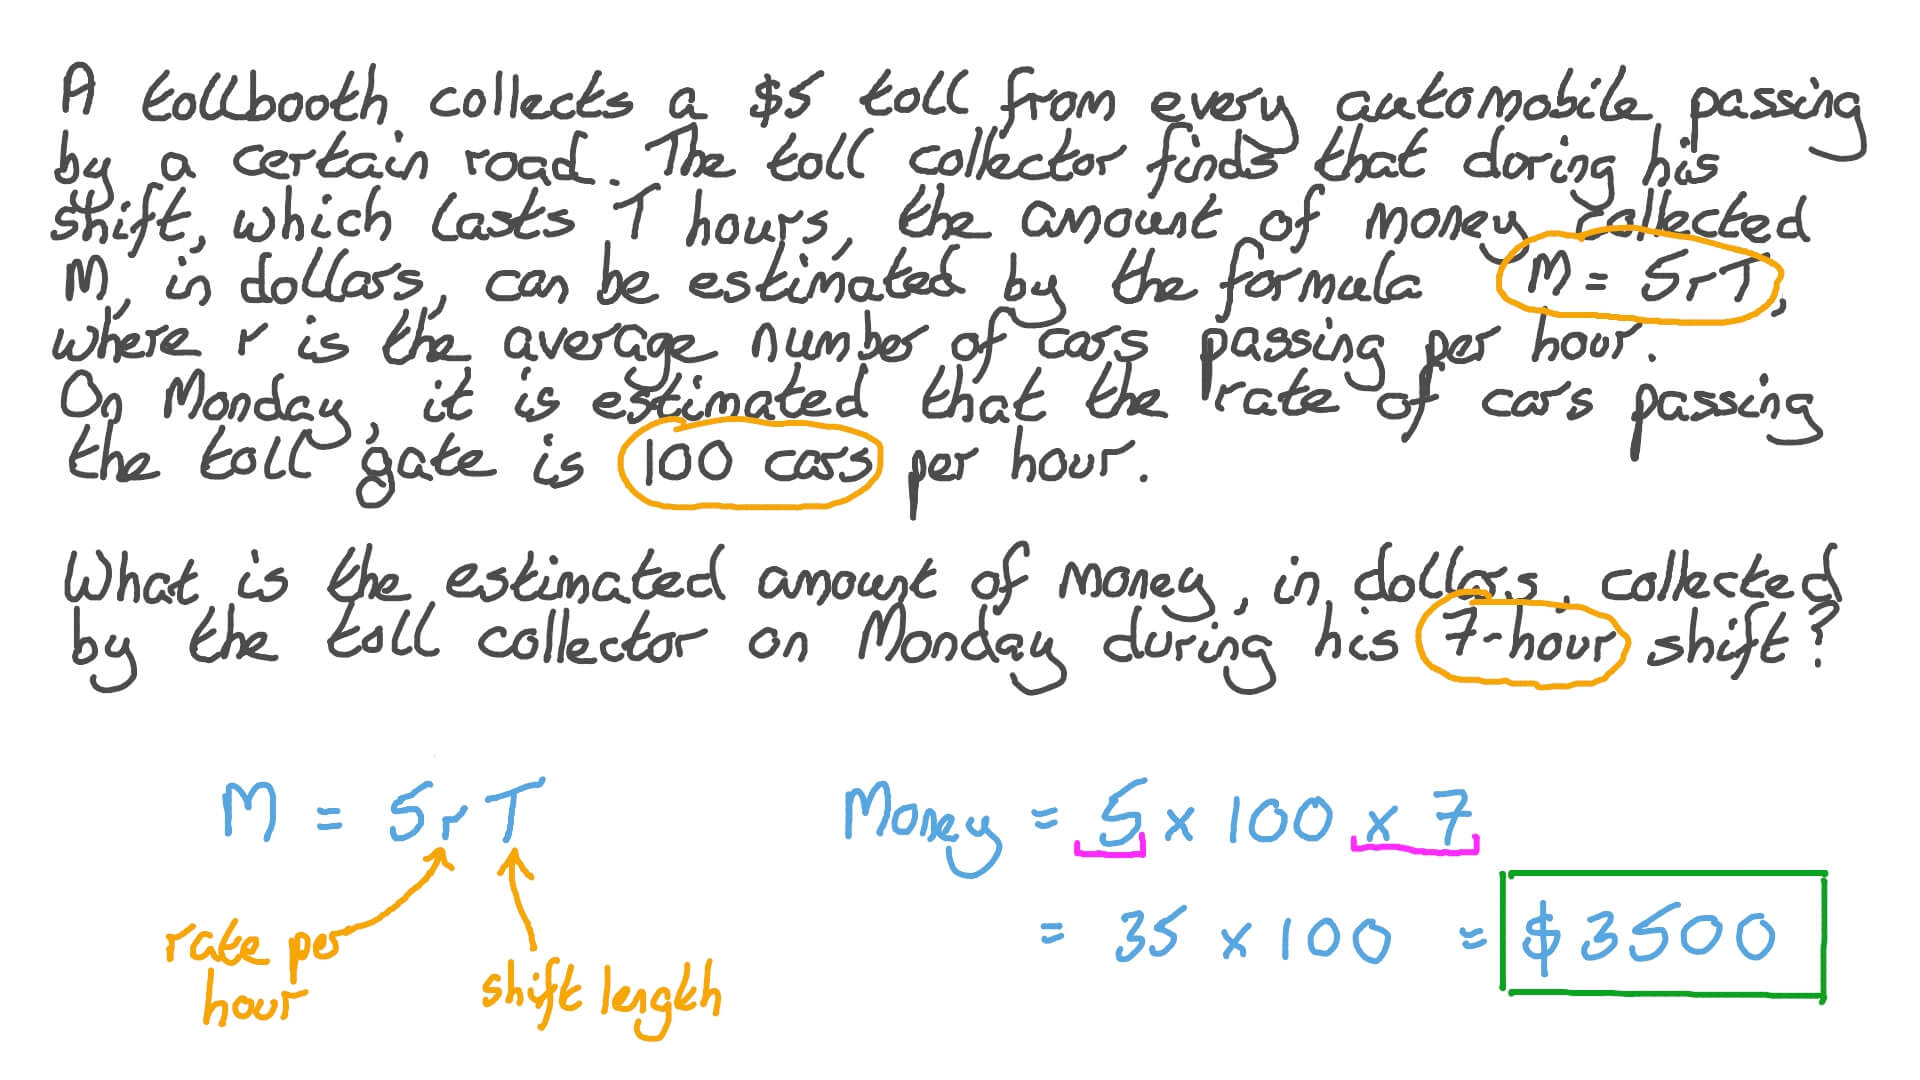 A tollbooth collects a $5 toll from every automobile passing
by a certain road. The toll collector finds that doring his
shift, which lasts T hours, the amount of money collected
M, in dollars, can be estimated by the formula M = 5rT,
where r is the average number of cars passing per hour.
On Monday, it is estimated that the rate of cars passing
the toll gate is 100 cars per hour.
What is the estimated amount of money, in dollars, collected
by the toll collector on Monday during his 7-hour shift?
M = 5rT
rate per
hour
shift length
Money = 5 x 100 x 7
= 35 x 100 = $3500